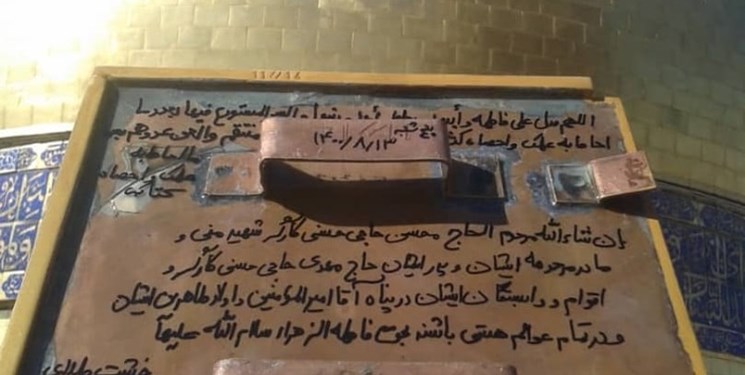 11/14
اللهم صل علی فاطمه و أبیها و بعلها و بنیها و السر المستودع فیها بعدد ما
احاط به علمک و احصاه کتابک
پنج شنبه
۱۴۰۰/۸/۱۳
منتقم والعن عدوهم
علمک و احصاه
کتابک
بإن شاءالله مرحوم الحاج محسن حاجی حسنی کارگر شهید منی و
مادر مرحومه ایشان و پدر ایشان حاج مهدی حاجی حسنی کارگر و
اقوام و وابستگان ایشان در پناه آقا امیرالمؤمنین و اولاد طاهرین ایشان
و در تمام عوالم هستی باشند بحق فاطمه الزهراء سلام الله علیها